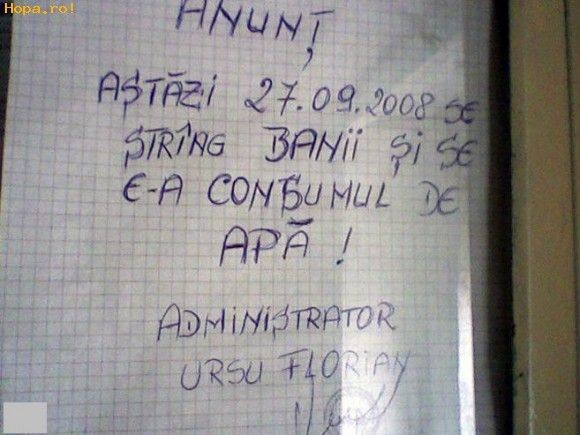 Hopa.ro!
ANUNȚ
AȘTĂZI 27.09.2008 SE
ȘTRÎNG BANII ȘI SE
E-A CONȘUMUL DE
APĂ !
ADMINIȘTRATOR
URSU FLORIAN